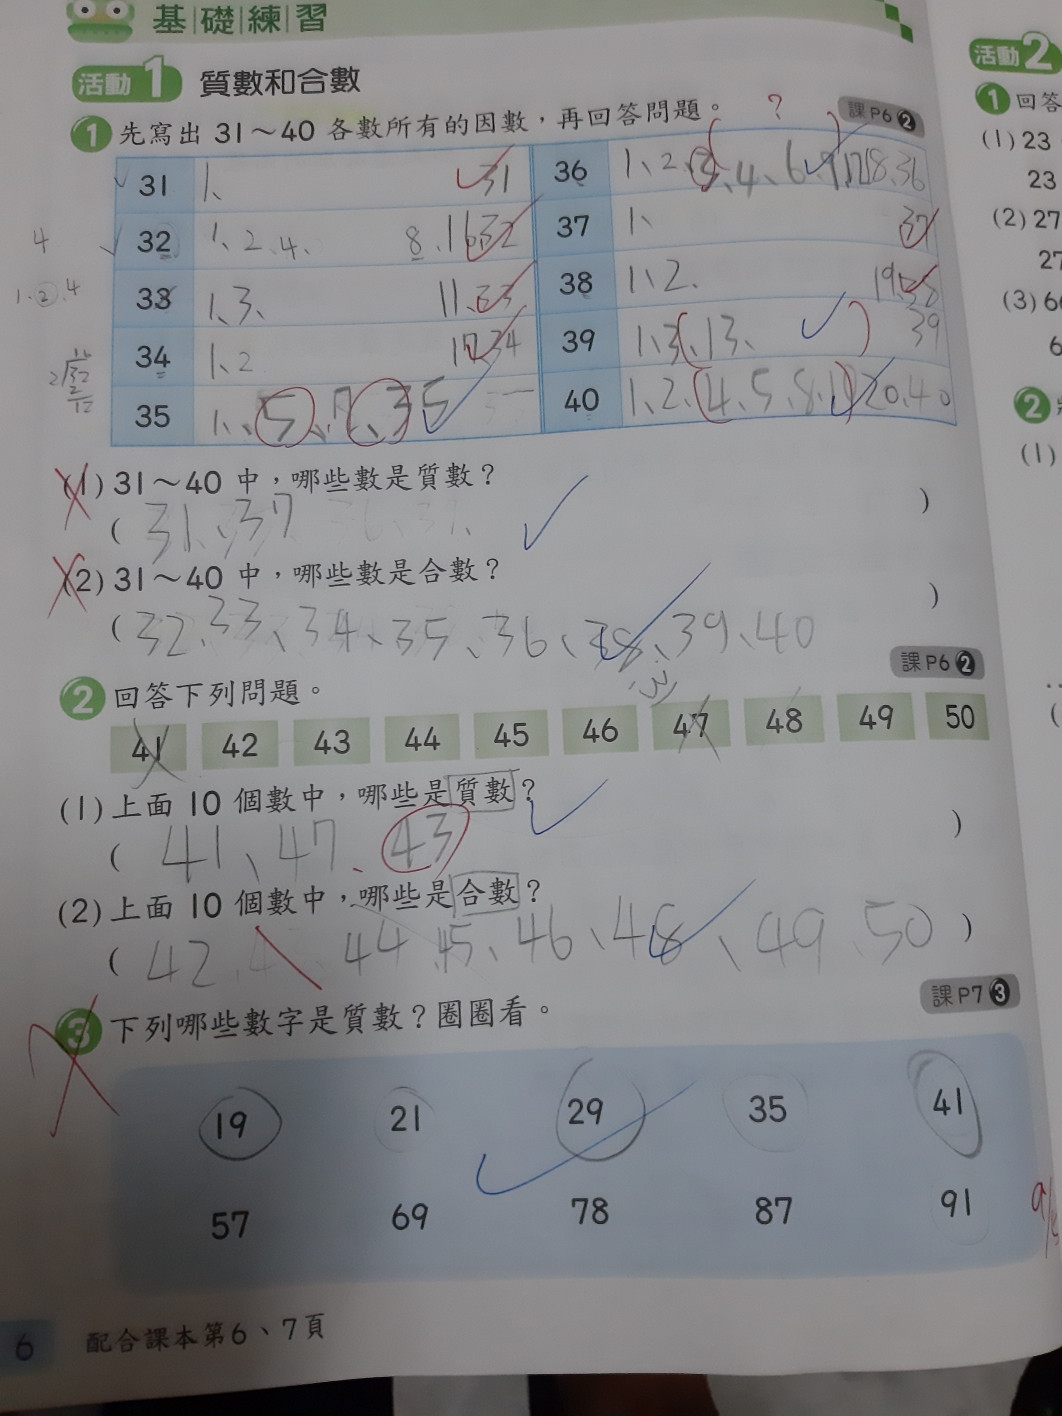 基礎練習
活動1 質數和合數
1 先寫出 31～40 各數所有的因數，再回答問題。 ? 課P6 2
31 1、 31
32 1、2、4、 8、16 32
33 1、3、 11、33
34 1、2 17 34
35 1、5、7、35
36 1、2、3、4、6、9、12、18、36
37 1、 37
38 1、2、 19、38
39 1、3、13、 39
40 1、2、4、5、8、10、20、40
4
1、2、4
(1) 31～40 中，哪些數是質數？
( 31、37 )
(2) 31～40 中，哪些數是合數？
( 32、33、34、35、36、38、39、40 )
2 回答下列問題。 課P6 2
41 42 43 44 45 46 47 48 49 50
(1) 上面 10 個數中，哪些是質數？
( 41、47、43 )
(2) 上面 10 個數中，哪些是合數？
( 42、 44 45、46、48、49、50 )
3 下列哪些數字是質數？圈圈看。 課P7 3
19 21 29 35 41
57 69 78 87 91
6 配合課本第6、7頁
活動2
1 回答
(1) 23
23
(2) 27
27
(3) 6
6
2
(1)